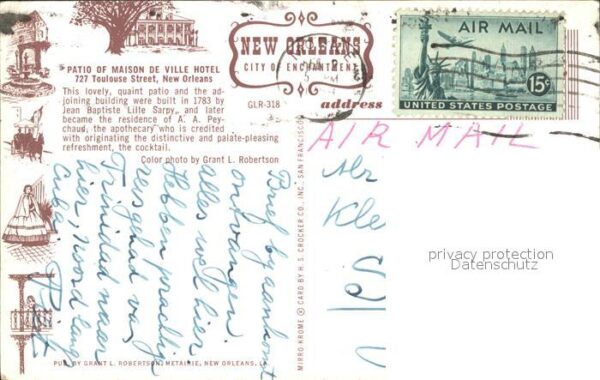 PATIO OF MAISON DE VILLE HOTEL
727 Toulouse Street, New Orleans
This lovely, quaint patio and the ad-
joining building were built in 1783 by
Jean Baptiste Lille Sarpy, and later
became the residence of A. A. Pey-
chaud, the apothecary who is credited
with originating the distinctive and palate-pleasing
refreshment, the cocktail.
Color photo by Grant L. Robertson
NEW ORLEANS
CITY OF ENCHANTMENT
GLR-318
address
AIR MAIL
15¢
UNITED STATES POSTAGE
AIR MAIL
Mr
Kle
Brief by aankomst
ontvangen.
alles wel hier
Hebben prachtige
reis gehad van
Trinidad naar
hier, Noord langs
Cuba.
Piet
MIRRO KROME ® CARD BY H. S. CROCKER CO., INC., SAN FRANCISCO
PUB. BY GRANT L. ROBERTSON, METAIRIE, NEW ORLEANS, LA
privacy protection
Datenschutz